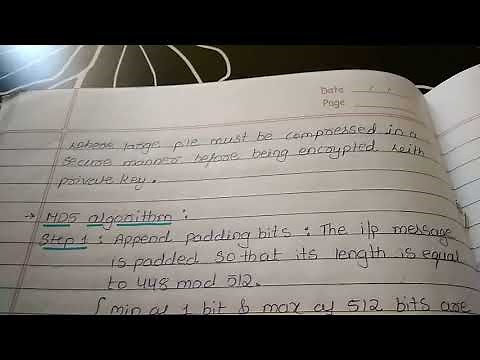 Date / /
Page
where large file must be compressed in a
secure manner before being encrypted with
private key.
→ MD5 algorithm :
Step 1 : Append padding bits : The i/p message
is padded so that its length is equal
to 448 mod 512.
[ min of 1 bit & max of 512 bits are